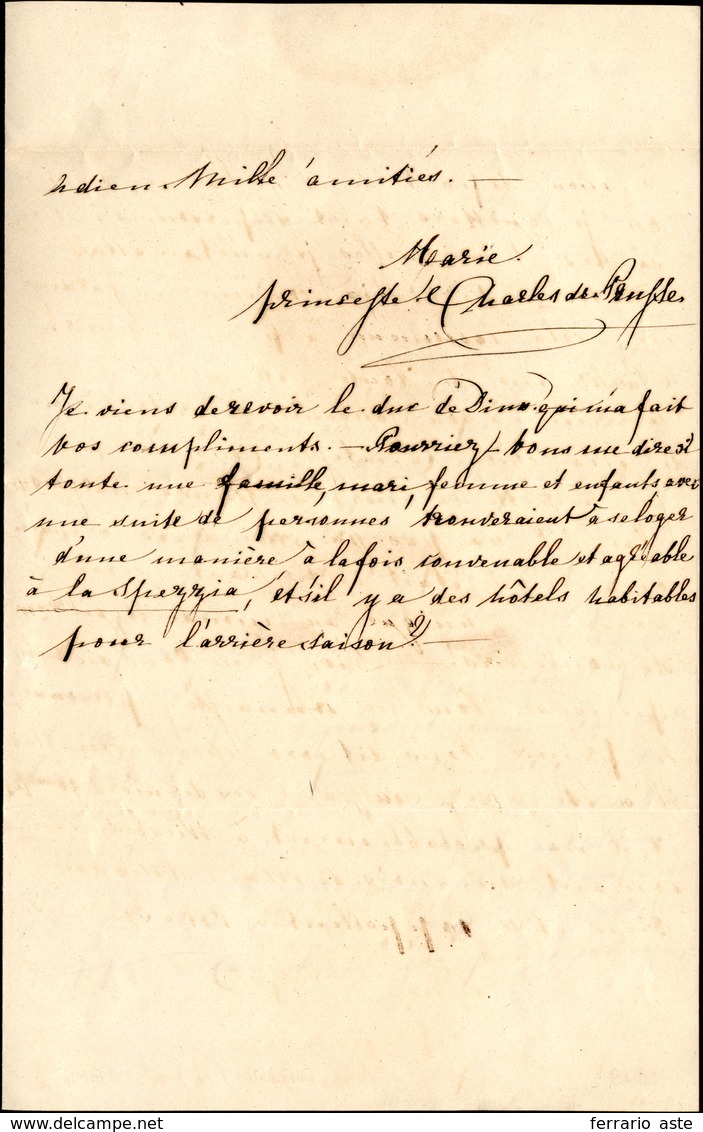 adieu Mille amitiés. —
Marie.
princesse Charles de Prusse.
Je viens de revoir le duc de Dino qui m'a fait
vos compliments. — Pourriez-vous me dire si
toute une famille, mari, femme et enfants, avec
une suite de personnes trouveraient à se loger
d'une manière à la fois convenable et agréable
à la Spezzia, et s'il y a des hôtels habitables
pour l'arrière saison? —
ferrario aste
delcampe.net